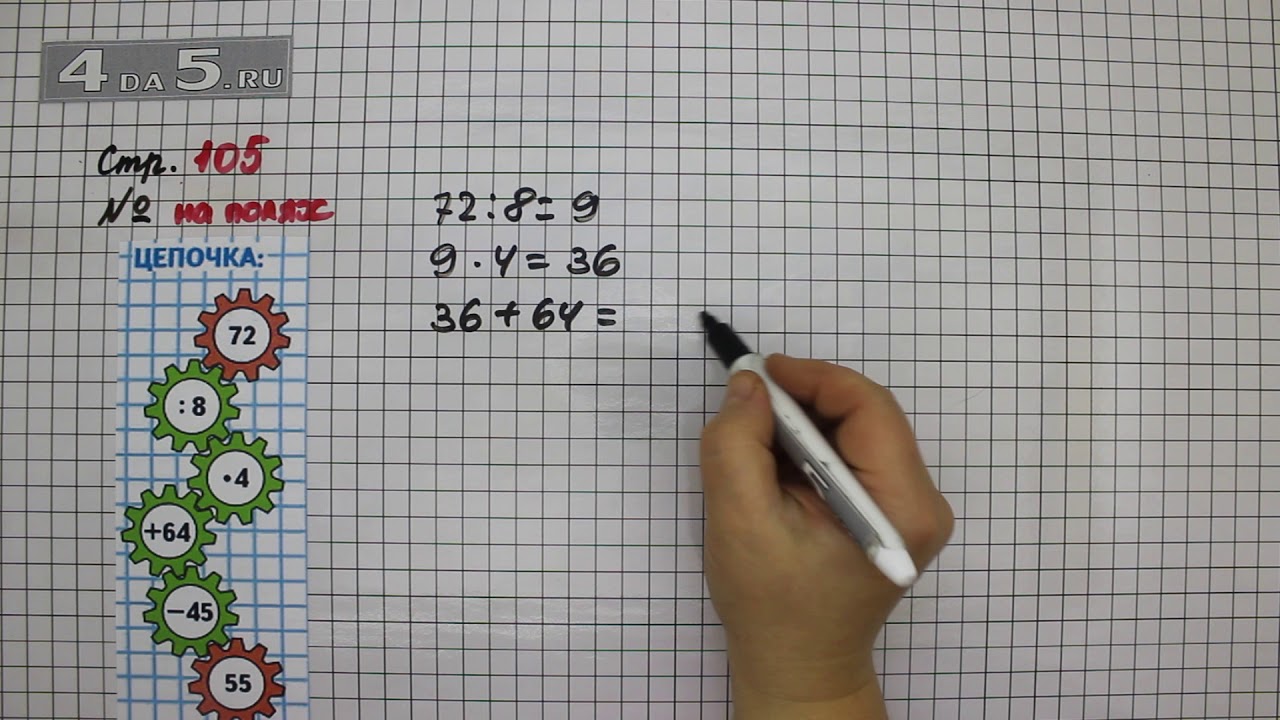 4DA5.RU
Стр. 105
№ на полях
72:8=9
9·4=36
36+64=
ЦЕПОЧКА:
72
:8
·4
+64
−45
55